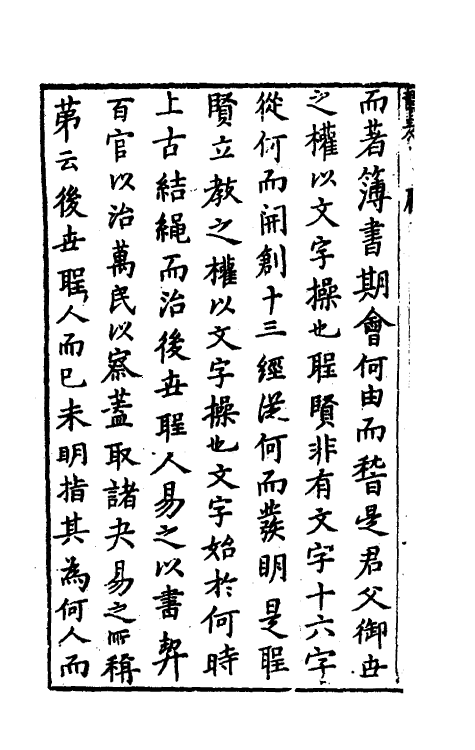 而著簿書期會何由而稽是君父御世
之權以文字操也聖賢非有文字十六字
從何而開創十三經從何而發明是聖
賢立教之權以文字操也文字始於何時
上古結繩而治後世聖人易之以書契
百官以治萬民以察蓋取諸夬易之所稱
第云後世聖人而已未明指其為何人而